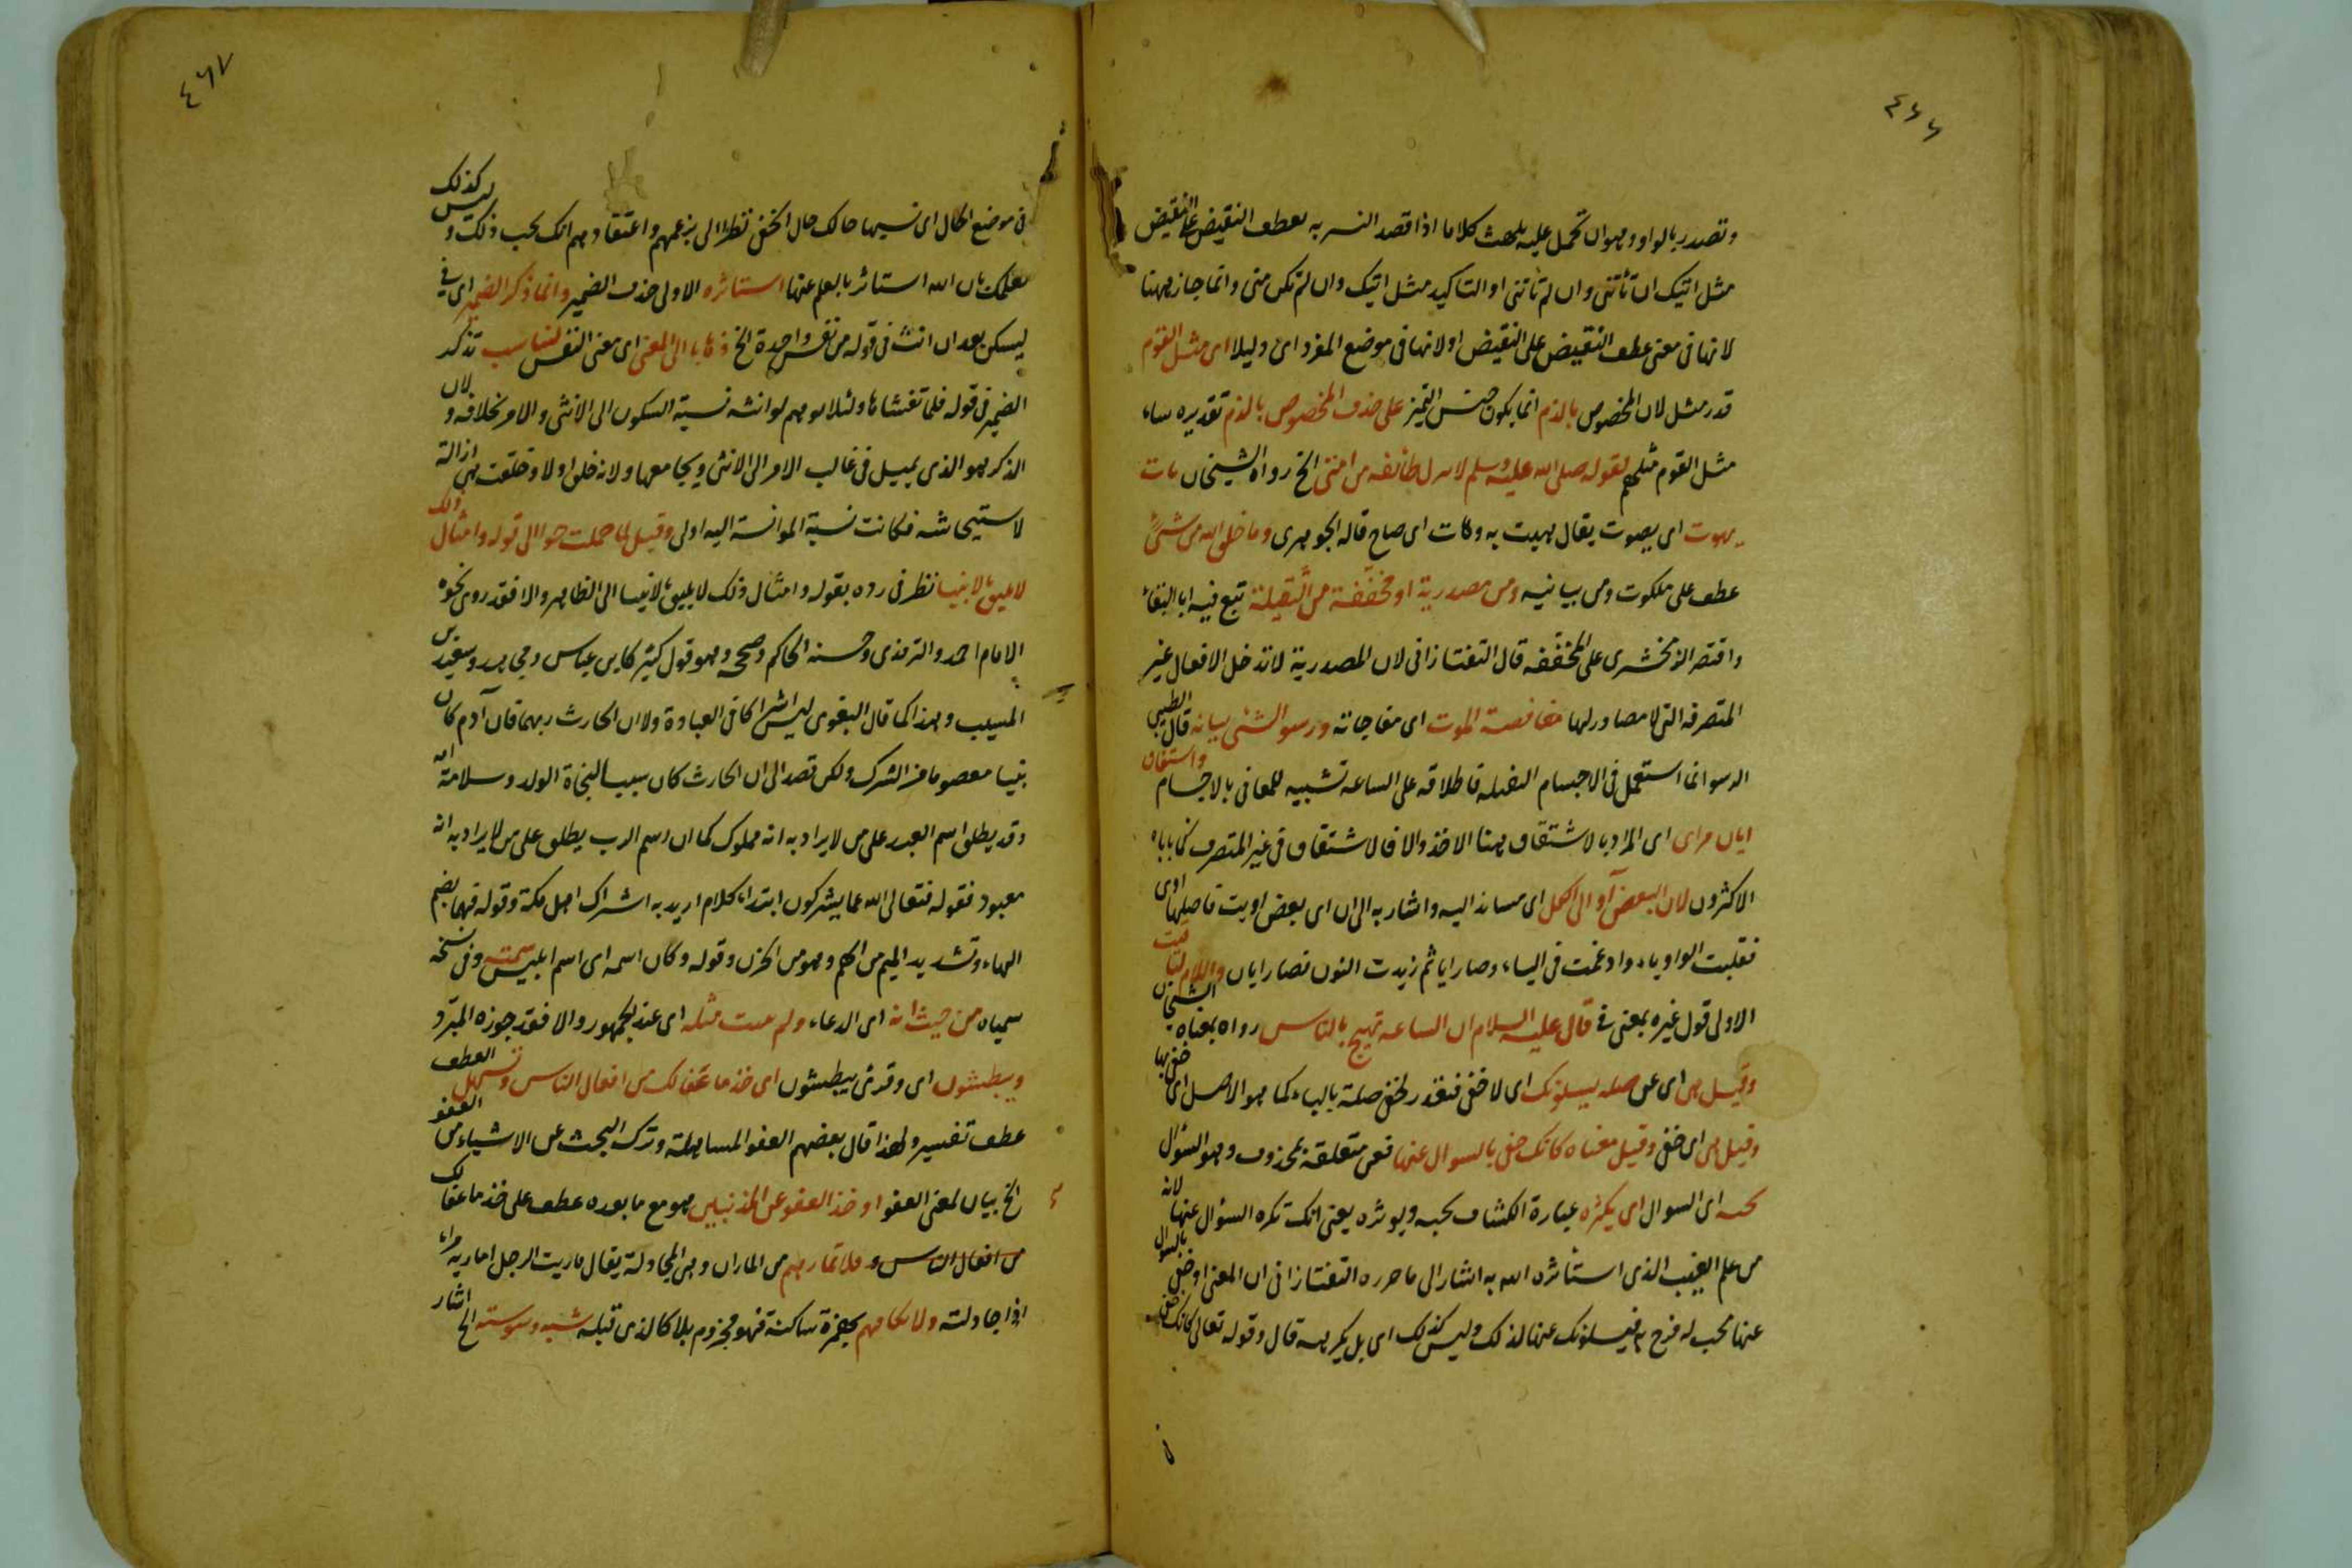 ٤٦٦
وتصدر بالواو وهو ان تحمل عليه يلهث كلاما اذا قصد التسوية بعطف النقيض على النقيض
مثل اتيك ان تأتني وان لم تأتني او التاكيد مثل اتيك وان لم تكن مني وانما جاز ههنا
لانها في معنى عطف النقيض على النقيض او لانها في موضع المفرد اى ذليلا اى مثل القوم
قدر مثل لان المخصوص بالذم انما يكون جنس التميز على حذف المخصوص بالذم تقديره ساء
مثل القوم مثلهم لقوله صلى الله عليه وسلم لا يزال طائفة من امتى الخ رواه الشيخان يات
يهوت اى يصوت يقال هيت به وهات اى صاح قاله الجوهرى وما خلق الله من شئ
عطف على ملكوت ومن بيانيه ومن مصدرية او مخففة من الثقيلة تبع فيه ابا البقاء
واقتصر الزمخشرى على المخففة قال التفتازانى لان المصدرية لا تدخل الافعال غير
المتصرفه التى لا مصادر لها مغافصة الموت اى مفاجاته ورسو الشئ ثباته قال الطيبي
الرسو انما استعمل فى الاجسام الثقيلة فاطلاقه على الساعه تشبيه للمعانى بالاجسام واشتقاق
ايان من اى اى المراد بالاشتقاق هنا الاخذ والا فالاشتقاق فى غير المتصرف مما ياباه
الاكثرون لان البعض آو الى الكل اى مساند اليه واشار به الى ان اى بعض اويت فاصلها اوى
فقلبت الواو ياء وادغمت فى الياء وصار ايا ثم زيدت النون فصار ايان واللام لتاقيت
الاولى قول غيره بمعنى فى قال عليه السلام ان الساعه تهيج بالناس رواه بمعناه الشيخان
وقيل هى اى عن صله يسلونك اى لا حفى فتقدر لحفى صلة بالباء كما هو الاصل اى حفى بها
وقيل هى اى حفى وقيل معناه كانك حفى بالسوال عنها فعن متعلقة بمحذوف وهو السؤال
تحبه اى السوال اى يكثره عبارة الكشاف تحبه وتوثره يعنى انك تكره السؤال عنها لانه
من علم الغيب الذى استأثره الله به اشار الى ما حرره التفتازانى ان المعنى او حفى بالسوال
عنها محب له فرح به فيسلونك عنها لذلك وليس كذلك اى بل يكرهه قال وقوله تعالى كانك حفى
٤٦٧
فى موضع الحال اى مشبها حالك حال الحفى نظرا الى زعمهم واعتقادهم انك تحب ذلك وليس كذلك
لعلمك بان الله استاثر بالعلم عنها استاثره الاولى حذف الضمير وانما ذكر الضمير اى فى
ليسكن بعد ان انث فى قوله من نفس واحدة الخ ذهابا الى المعنى اى معنى النفس لتناسب تذكر
الضمير فى قوله فلما تغشاها ولئلا يوهم لو انثه نسبة السكون الى الانثى والامر بخلافه ولان
الذكر هو الذى يميل فى غالب الامر الى الانثى ويجامعها ولانه خلق اولا وخلقت هى ازالة
لاستيحاشه فكانت نسبة الموانسة اليه اولى وقيل لما حملت حوا الى قوله وامثال ذلك
لا يليق لانبيا نظر فى رده بقوله وامثال ذلك لا يليق لانبيا الى الظاهر والا فقد روى نحوه
الامام احمد والترمذى وحسنه الحاكم وصححه وهو قول كثير كابن عباس ومجاهد وسعيد بن
المسيب وهذا كما قال البغوى ليس اشراكا فى العبادة ولا ان الحارث ربهما فان آدم كان
نبيا معصوما من الشرك ولكن قصد الى ان الحارث كان سببا لنجاة الولد وسلامة امه
وقد يطلق اسم العبد على من لا يراد به انه مملوك كما ان اسم الرب يطلق على من لا يراد به انه
معبود فقوله فتعالى الله عما يشركون ابتداء كلام اريد به اشراك اهل مكة وقوله فهما بضم
الهاء وتشديد الميم من الهم وهو من الحزن وقوله وكان اسمه اى اسم ابليس سمته وفى نسخه
سمياه من حيث انه اى الدعاء ولم يثبت مثله اى عند الجمهور والا فقد جوزه المبرد
ويبطشون اى وقرئ يبطشون اى خذ ما عفا لك من افعال الناس وتسهيل العطف
عطف تفسير ولهذا قال بعضهم العفو المساهلة وترك البحث عن الاشياء من العفو
الخ بيان لمعنى العفو او خذ العفو عن المذنبين هو مع ما بعده عطف على خذ ما عفا لك
من افعال الناس ولا تمارهم من المارات وهى المجادلة يقال ماريت الرجل اماريه مراء
اذا جادلته ولا تكافهم بهمزة ساكنة فهو مجزوم بلا كالذى قبله شبه وسوسته الخ اشار